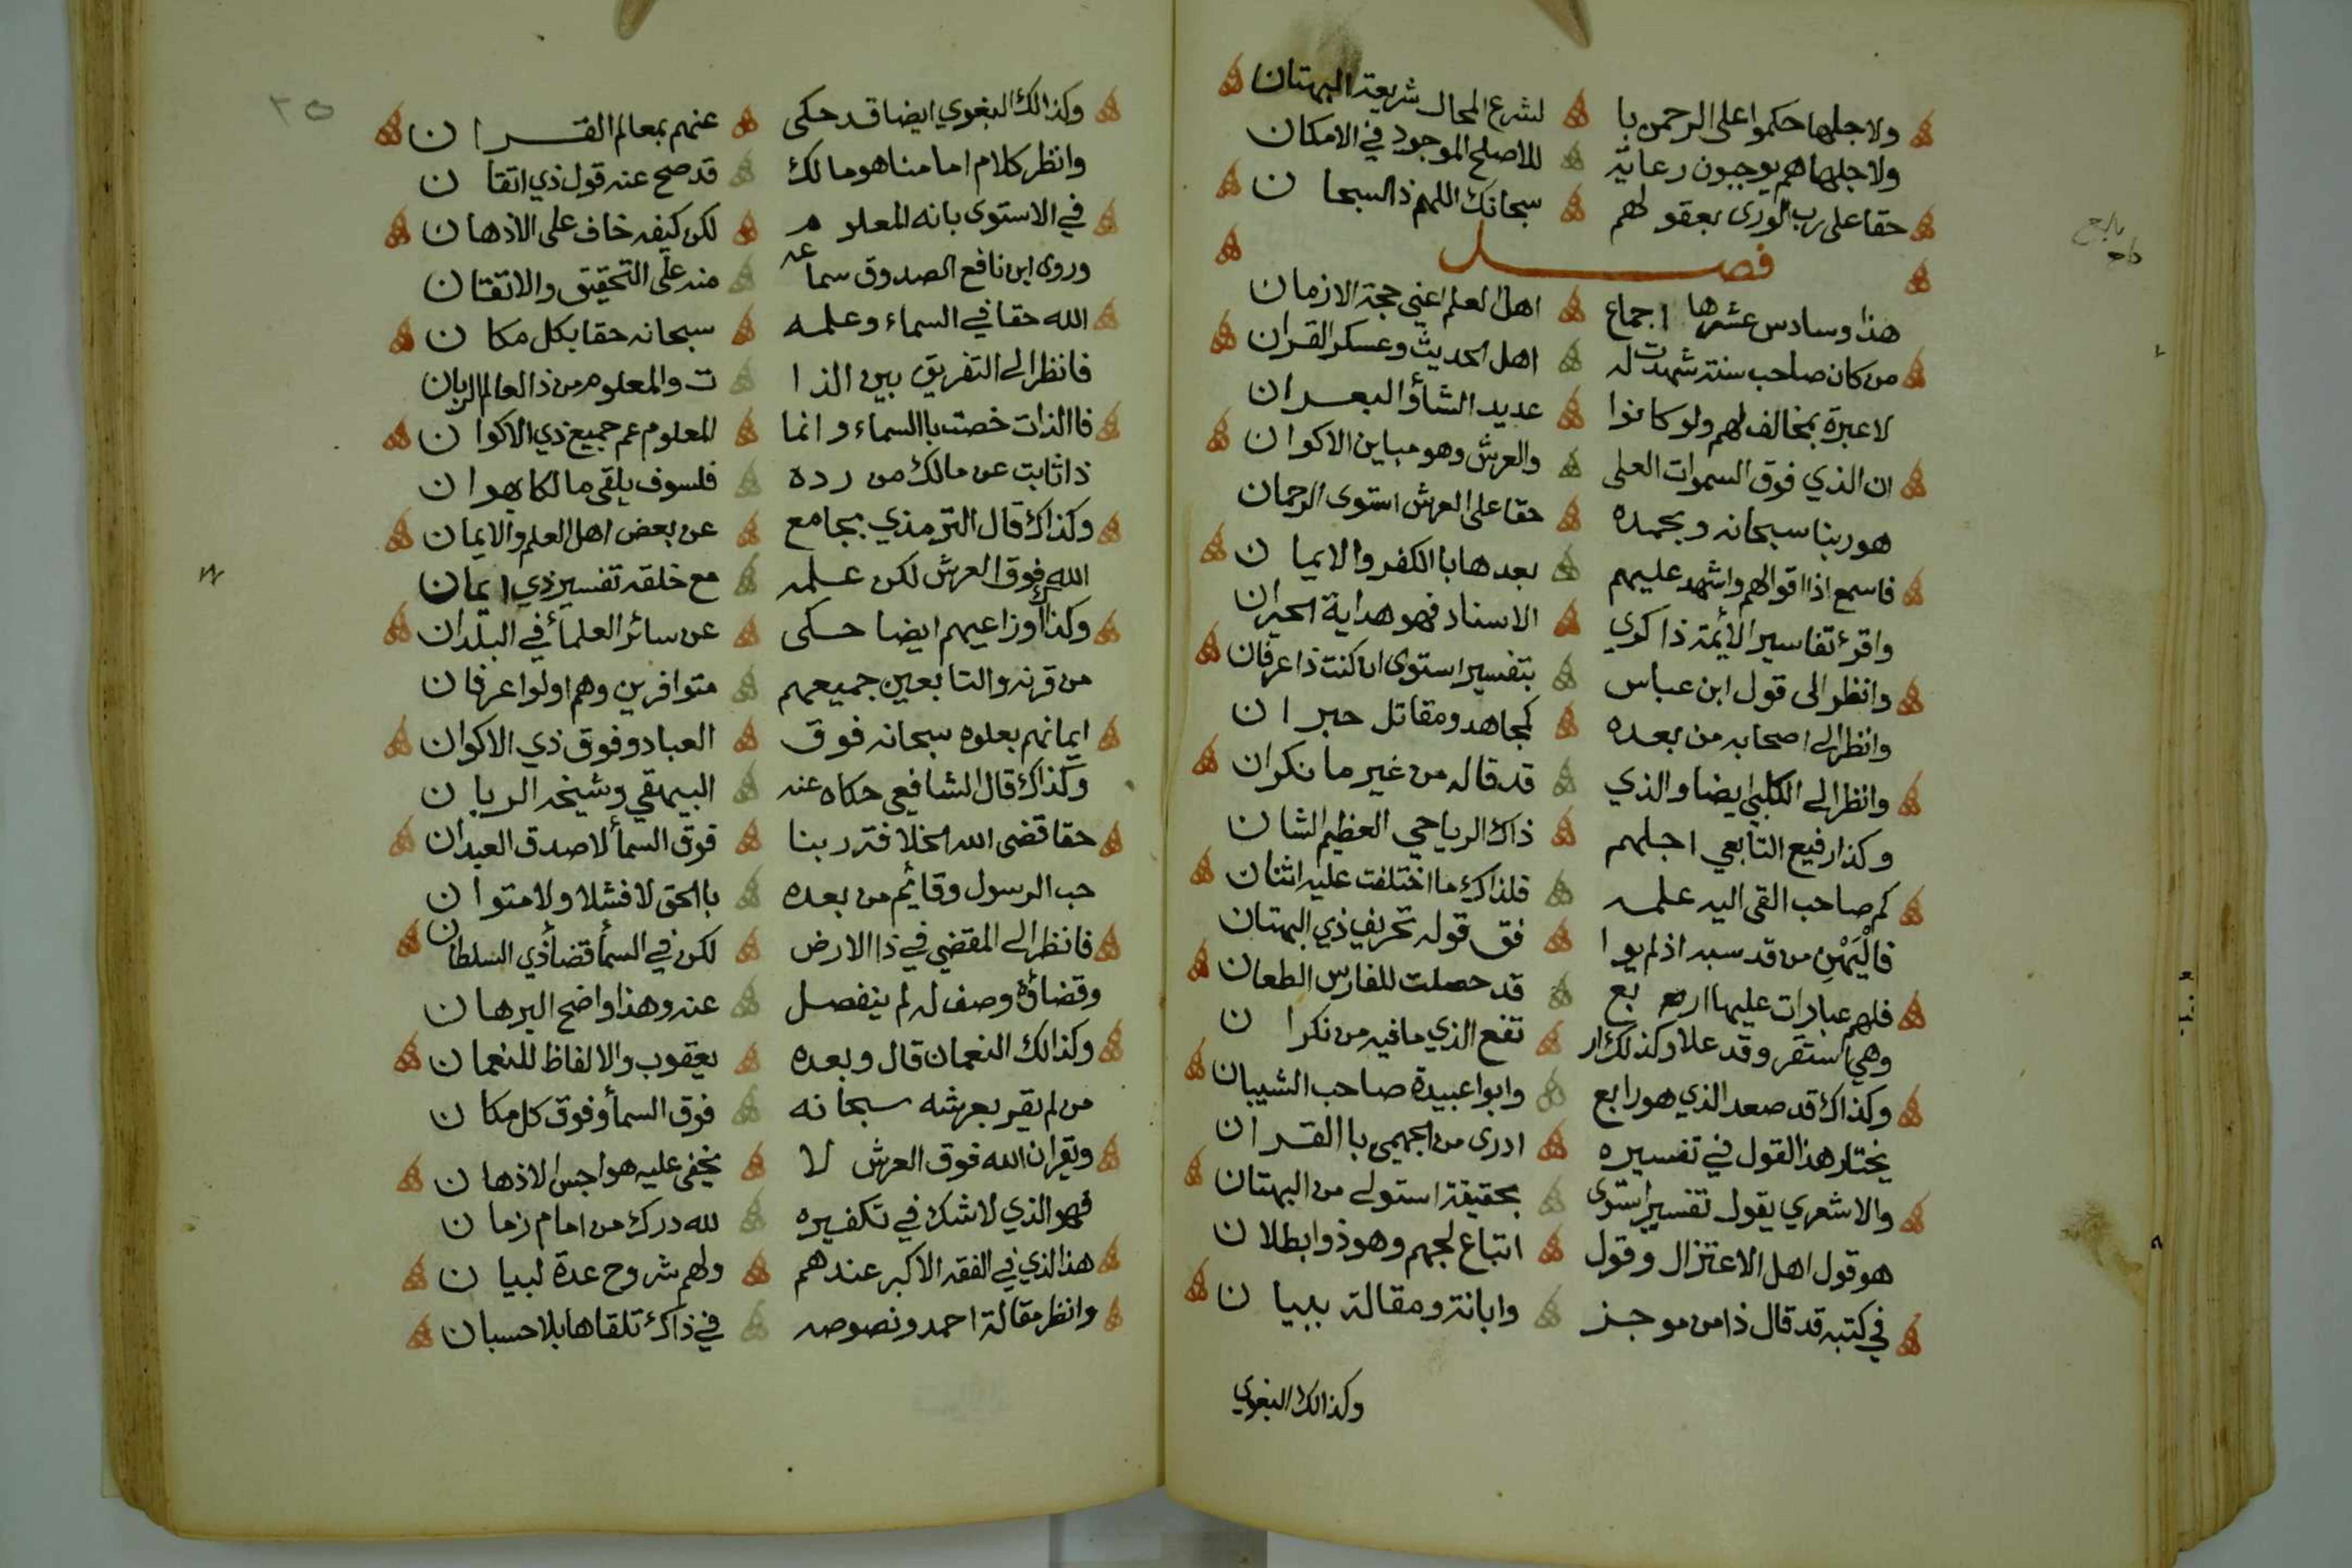 ولاجلها حكموا على الرحمن با لشرع المحال شريعة البهتان
ولاجلها هم يوجبون رعاية للاصلح الموجود في الامكان
حقا على رب الورى بعقولهم سبحانك اللهم ذا السبحان
فصل
هذا وسادس عشرها اجماع اهل العلم اعني حجة الازمان
من كان صاحب سنة شهدت له اهل الحديث وعسكر القران
لا عبرة بمخالف لهم ولو كانوا عديد الشأو البعران
ان الذي فوق السموات العلى والعرش وهو مباين الاكوان
هو ربنا سبحانه وبحمده حقا على العرش استوى الرحمان
فاسمع اذا اقوالهم واشهد عليهم بعدها باالكفر والايمان
واقرء تفاسير الأئمة ذاكري الاسناد فهو هداية الحيران
وانظر الى قول ابن عباس بتفسير استوى ان كنت ذا عرفان
وانظر الى اصحابه من بعده كمجاهد ومقاتل حبران
وانظر الى الكلبي ايضا والذي قد قاله من غير ما نكران
وكذا رفيع التابعي اجلهم ذاك الرياحي العظيم الشان
كم صاحب القى اليه علمه فلذاك ما اختلفت عليه اثنان
فاليَهْنِ من قد سبه اذ لم يوا فق قوله تحريف ذي البهتان
فلهم عبارات عليها اربع قد حصلت للفارس الطعان
وهي استقر وقد علا وكذلك ار تفع الذي ما فيه من نكران
وكذاك قد صعد الذي هو رابع وابوا عبيدة صاحب الشيبان
يختار هذا القول في تفسيره ادرى من الجهمي باالقران
والاشعري يقول تفسير استوى بحقيقة استولى من البهتان
هو قول اهل الاعتزال وقول اتباع لجهم وهو ذوا بطلان
في كتبه قد قال ذا من موجز وابانة ومقالة ببيان
وكذالك البغوي
٢٥
وكذالك البغوي ايضا قد حكى عنهم بمعالم القران
وانظر كلام امامنا هو مالك قد صح عنه قول ذي اتقان
في الاستوى بانه المعلوم لكن كيفه خاف على الاذهان
وروى ابن نافع الصدوق سماعه منه على التحقيق والاتقان
الله حقا في السماء وعلمه سبحانه حقا بكل مكان
فانظر الى التفريق بين الذا ت والمعلوم من ذا العالم الربان
فاالذات خصت باالسماء وانما المعلوم عم جميع ذي الاكوان
ذا ثابت عن مالك من رده فلسوف يلقى مالكا بهوان
وكذاك قال الترمذي بجامع عن بعض اهل العلم والايمان
الله فوق العرش لكن علمه مع خلقه تفسير ذي ايمان
وكذاك اوزاعيهم ايضا حكى عن سائر العلمأ في البلدان
من قرنه والتابعين جميعهم متوافرين وهم اولوا عرفان
ايمانهم بعلوه سبحانه فوق العباد وفوق ذي الاكوان
وكذاك قال الشافعي حكاه عنه البيهقي وشيخه الربان
حقا قضى الله الخلافة ربنا فوق السمأ لاصدق العبدان
حب الرسول وقائم من بعده باالحق لا فشلا ولا متوان
فانظر الى المقضي في ذا الارض لكن في السمأ قضأ ذي السلطان
وقضاؤه وصف له لم ينفصل عنه وهذا واضح البرهان
وكذالك النعمان قال وبعده يعقوب والالفاظ للنعمان
من لم يقر بعرشه سبحانه فوق السمأ وفوق كل مكان
ويقر ان الله فوق العرش لا يخفى عليه هواجس الاذهان
فهو الذي لاشك في تكفيره لله درك من امام زمان
هذا الذي في الفقه الاكبر عندهم ولهم شروح عدة لبيان
وانظر مقالة احمد ونصوصه في ذاك تلقاها بلا حسبان